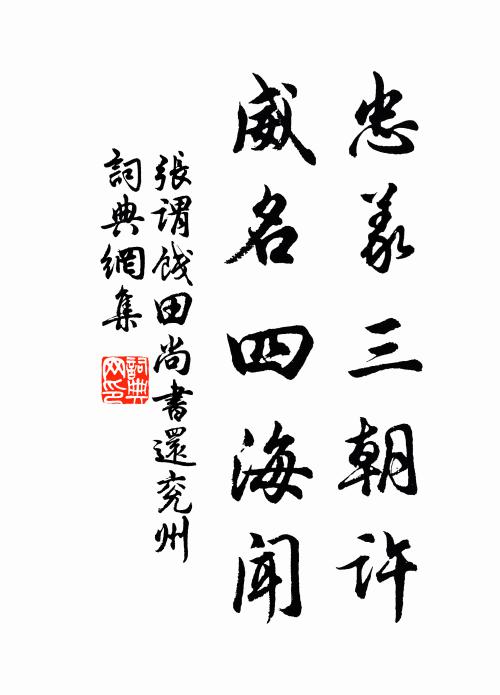 忠義三朝許
威名四海聞
張謂餞田尚書還兗州
詞典網集
詞典
网印